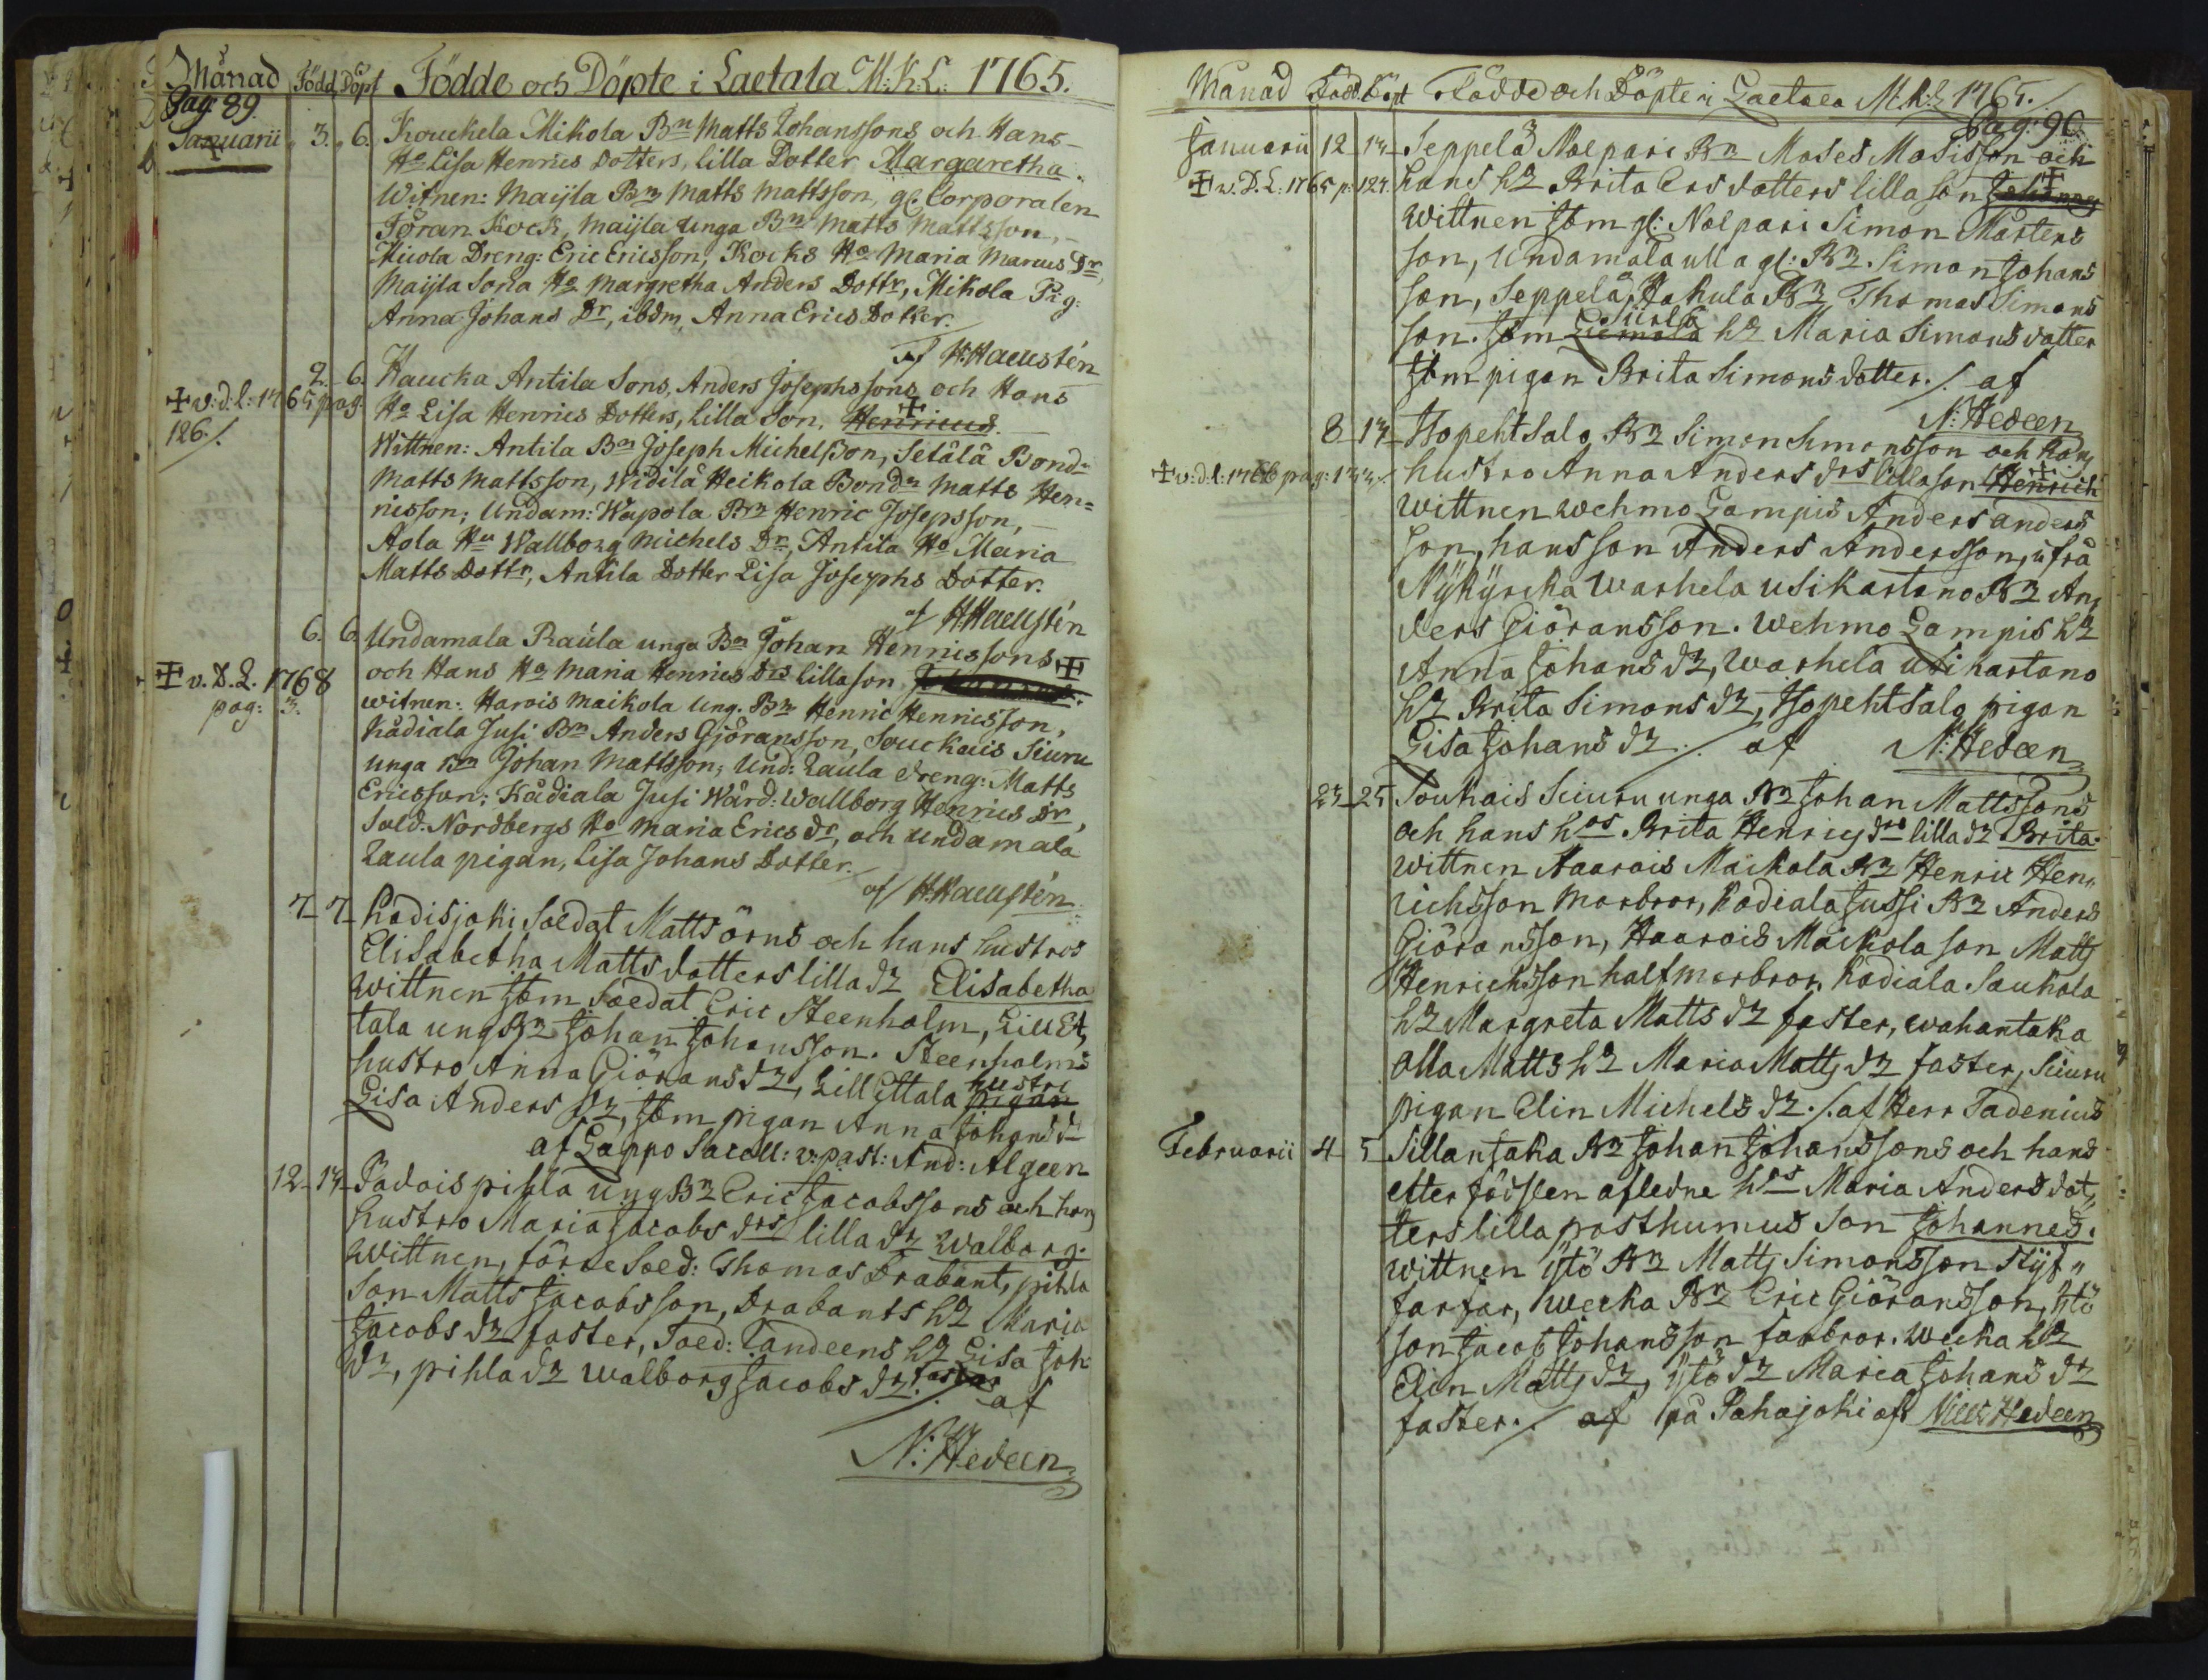 Månad Född Döpt Födde och Döpte i Laetala M:K:L: 1765.
Pag: 89.
Januarii 3. 6. Kouckela Mikola Bn Matts Johanssons och Hans
Ho Lisa Henrics Dotters, lilla Dotter Margaretha.
Witnen: Maijla Bn Matts Mattsson, gl. Corporalen
Jöran Kock, Maijla unga Bn Matts Mattsson,
Micola Dreng: Eric Ericsson, Kocks Ho Maria Marcus Dr,
Maijla Sona Ho Margretha Anders Dottr, Mikola Pig:
Anna Johans Dr, ibdm, Anna Erics Dotter.
af H.Haustén
2. 6. Haucka Antila Sons, Anders Josephssons och Hans
v:d:l: 1765 pag. Ho Lisa Henrics Dotters, lilla Son, Henricus.
126./. Wittnen: Antila Bn Joseph Michelsson, Setälä Bond:
Matts Mattsson, Widilä Heikola Bondn Matts Hen=
ricsson; Undam: Wäpola Bn Henric Josepsson,
Aola Hu Wallborg Michels Dr, Antila Ho Maria
Matts Dottr, Antila Dotter Lisa Josephs Dotter.
af HHaustén
6. 6. Undamala Raula unga Bn Johan Henricssons
v. D. L. 1768 och Hans Ho Maria Henrics Drs lilla son
pag: 3. witnen: Harois Maikola ung. Bn Henric Henricsson,
Kådiala Jusi Bn Anders Gjöransson, Souckais Siuru
unga Bn Johan Mattsson; Und: Laula dreng: Matts
Ericsson; Kådiala Jusi Wärd: Wallborg Henrics Dr,
Sold. Nordbergs Ho Maria Erics dr, och Undamala
Laula pigan, Lisa Johans Dotter.
af H.Haustén
7 7 Kodisjoki Soldat Matts Örns och hans hustros
Elisabetha Matts dotters lilla dr Elisabetha
wittnen ibm Soldat Eric Steenholm, Lill Et,,
tala ung Bn Johan Johansson. Steenholms
hustro Anna Giörans dr, Lill Ettala hustr pigan
Lisa Anders dr, ibm pigan Anna Johans dr
af Lappo Sacell: v: past: And: Algeen
12 13 Padois pihla ung Bn Eric Jacobssons och hans
hustro Maria Jacobs drs lilla dr Walborg.
Wittnen, förre Sold: Thomas Drabant, pihla
son Matts Jacobsson, Drabants ho Maria
Jacobs dr faster, Sold: Landeens ho Lisa Joh:
dr, pihla dr Walborg Jacobs dr. faster ./. af
N: Hedeen

Månad Född Döpt Födde och Döpte i Laetala M:K:L 1765.
Pag: 90.
Januarii 12 13 Seppelä Nælpari Bn Moses Mosisson och
v. D. L: 1765 p: 127. hans ho Brita Ers dotters lilla son Johannes
wittnen ibm gl: Nælpari Simon Mårtens
son, Undamala ulla gl: Bn. Simon Johans
son, Seppelä Hakula Bn Thomas Simons
son. ibm ho Maria Simons dotter
ibm pigan Brita Simons dotter. ./. af
N: Hedeen
8 13 Hopehtsalo Bn Simon Simonsson och hans
v:d:l: 1766 pag: 133. hustro Anna Anders drs lilla son Henrich
wittnen Wehmo Lampis Anders Anders
son, hans son Anders Andersson, ifrå
Nykyrcka Warhela usikartano Bn An,,
ders Giöransson. Wehmo Lampis ho
Anna Johans dr, Warhela usikartano
ho Brita Simons dr, Hopehtsalo pigan
Lisa Johans dr ./. af N: Hedeen
23 25 Soukais Siuru unga Bn Johan Mattssons
och hans hos Brita Henrics drs lilla dr Brita.
wittnen Haarois Maikola Bn Henric Hen,,
richsson morbror, Kodiala Jussi Bn Anders
Giöransson, Haarois Maikola son Matts
Henrichsson half morbror, Kodiala Saukola
ho Margreta Matts dr faster, Wahantaka
Olla Matts ho Maria Matts dr faster, Siuru
pigan Elin Michels dr. ./. af Herr Tadenius
Februarii 4 5 Sillantaka Bn Johan Johanssons och hans
efter födslen afledne hos Maria Anders dot,,
ters lilla posthumus Son Johannes.
wittnen Ytö Bn Matts Simonsson Styf,,
farfar, Wecka Bn Eric Giöransson, Ytö
son Jacob Johansson farbror. Wecka ho
Elin Matts dr, Ytö dr Maria Johans dr
faster. ./. af på Pahajoki af Nils Hedeen